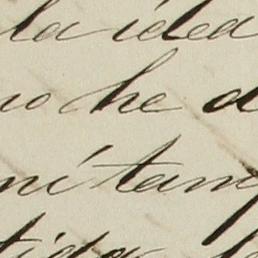 la idea
no he d
ni tamp